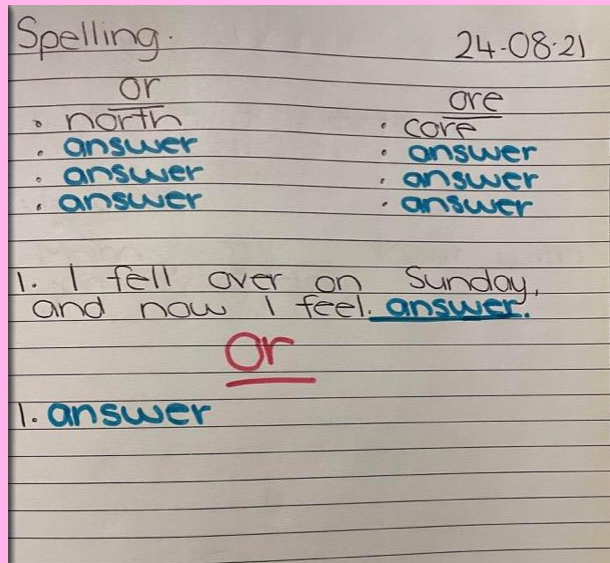 Spelling. 24-08-21
or ore
• north • core
• answer • answer
• answer • answer
• answer • answer
1. I fell over on Sunday,
and now I feel. answer.
Or
1. answer